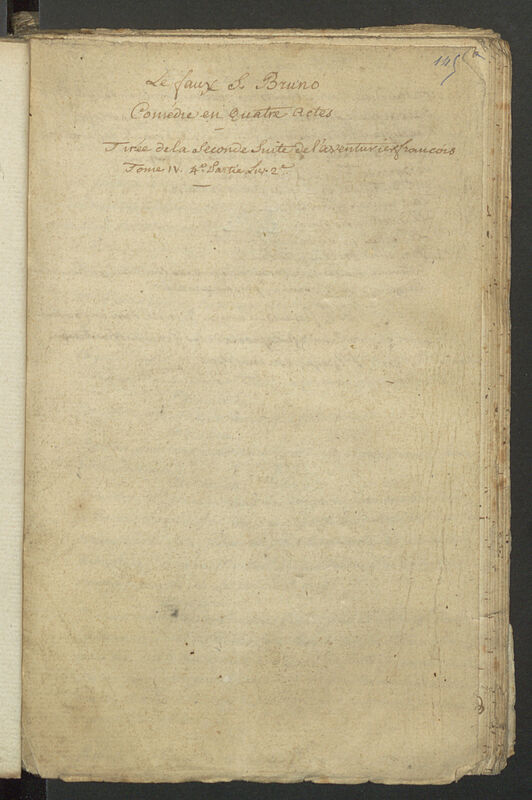 Le faux S. Bruno
Comédie en Quatre Actes
Tirée de la Seconde Suite de l'aventurier francois
Tome IV. 4e. Partie Liv. 2e
145